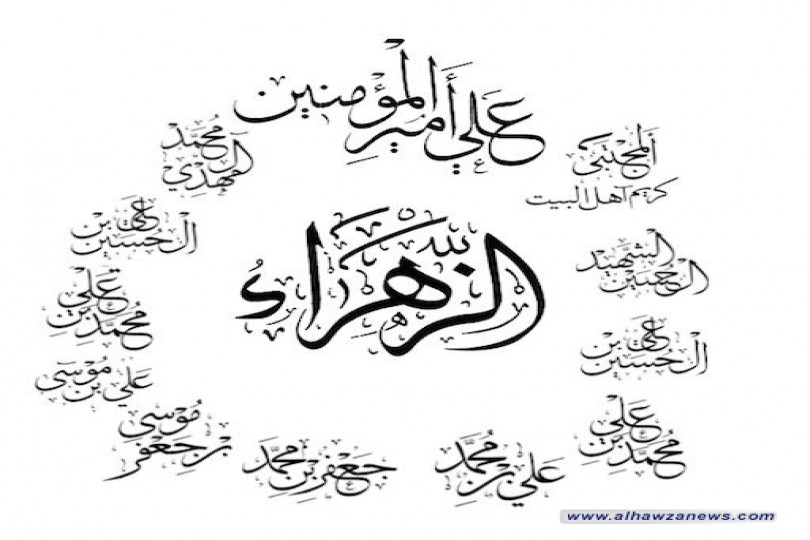 عَلي أَميرِ المؤمنين
ألمجتبى
كريم آهل البيت
الشهيد
الحسين
علي بن
الحسين
علي
محمد بن
علي بن محمد
جعفر بن محمد
موسى
بن جعفر
علي بن موسى
علي
محمد بن
علي بن
الحسين
محمد
المهدي
الزهراءُ
www.alhawzanews.com